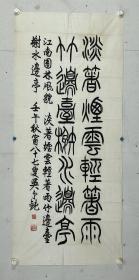 淡著煙雲輕著雨
竹邊臺榭水邊亭
江南園林風貌 淡著煙雲輕著雨竹邊臺
榭水邊亭 壬午秋 八十七叟吳